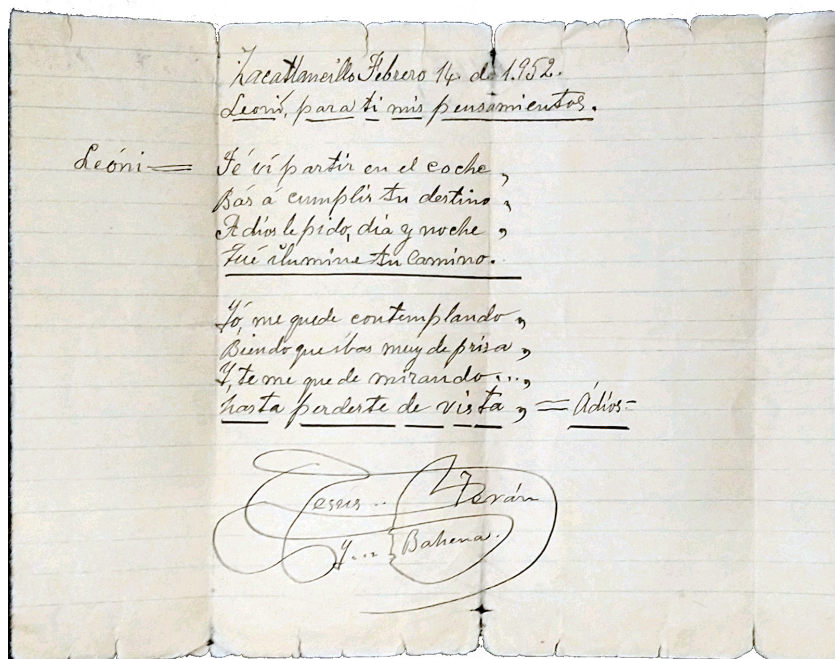 Zacatlancillo Febrero 14 de 1.952.
Leoni, para ti mis pensamientos.
Leóni= Té ví partir en el coche,
Bás á cumplir tu destino,
A díos le pido, día y noche,
Qué ilumine tu camino.
Yó, me quede contemplando,
Biendo que ibas muy de prisa,
Y, te me que de mirando...,
hasta perderte de vista, = Ádios=
Jesus.. Terán
Y... Bahena.